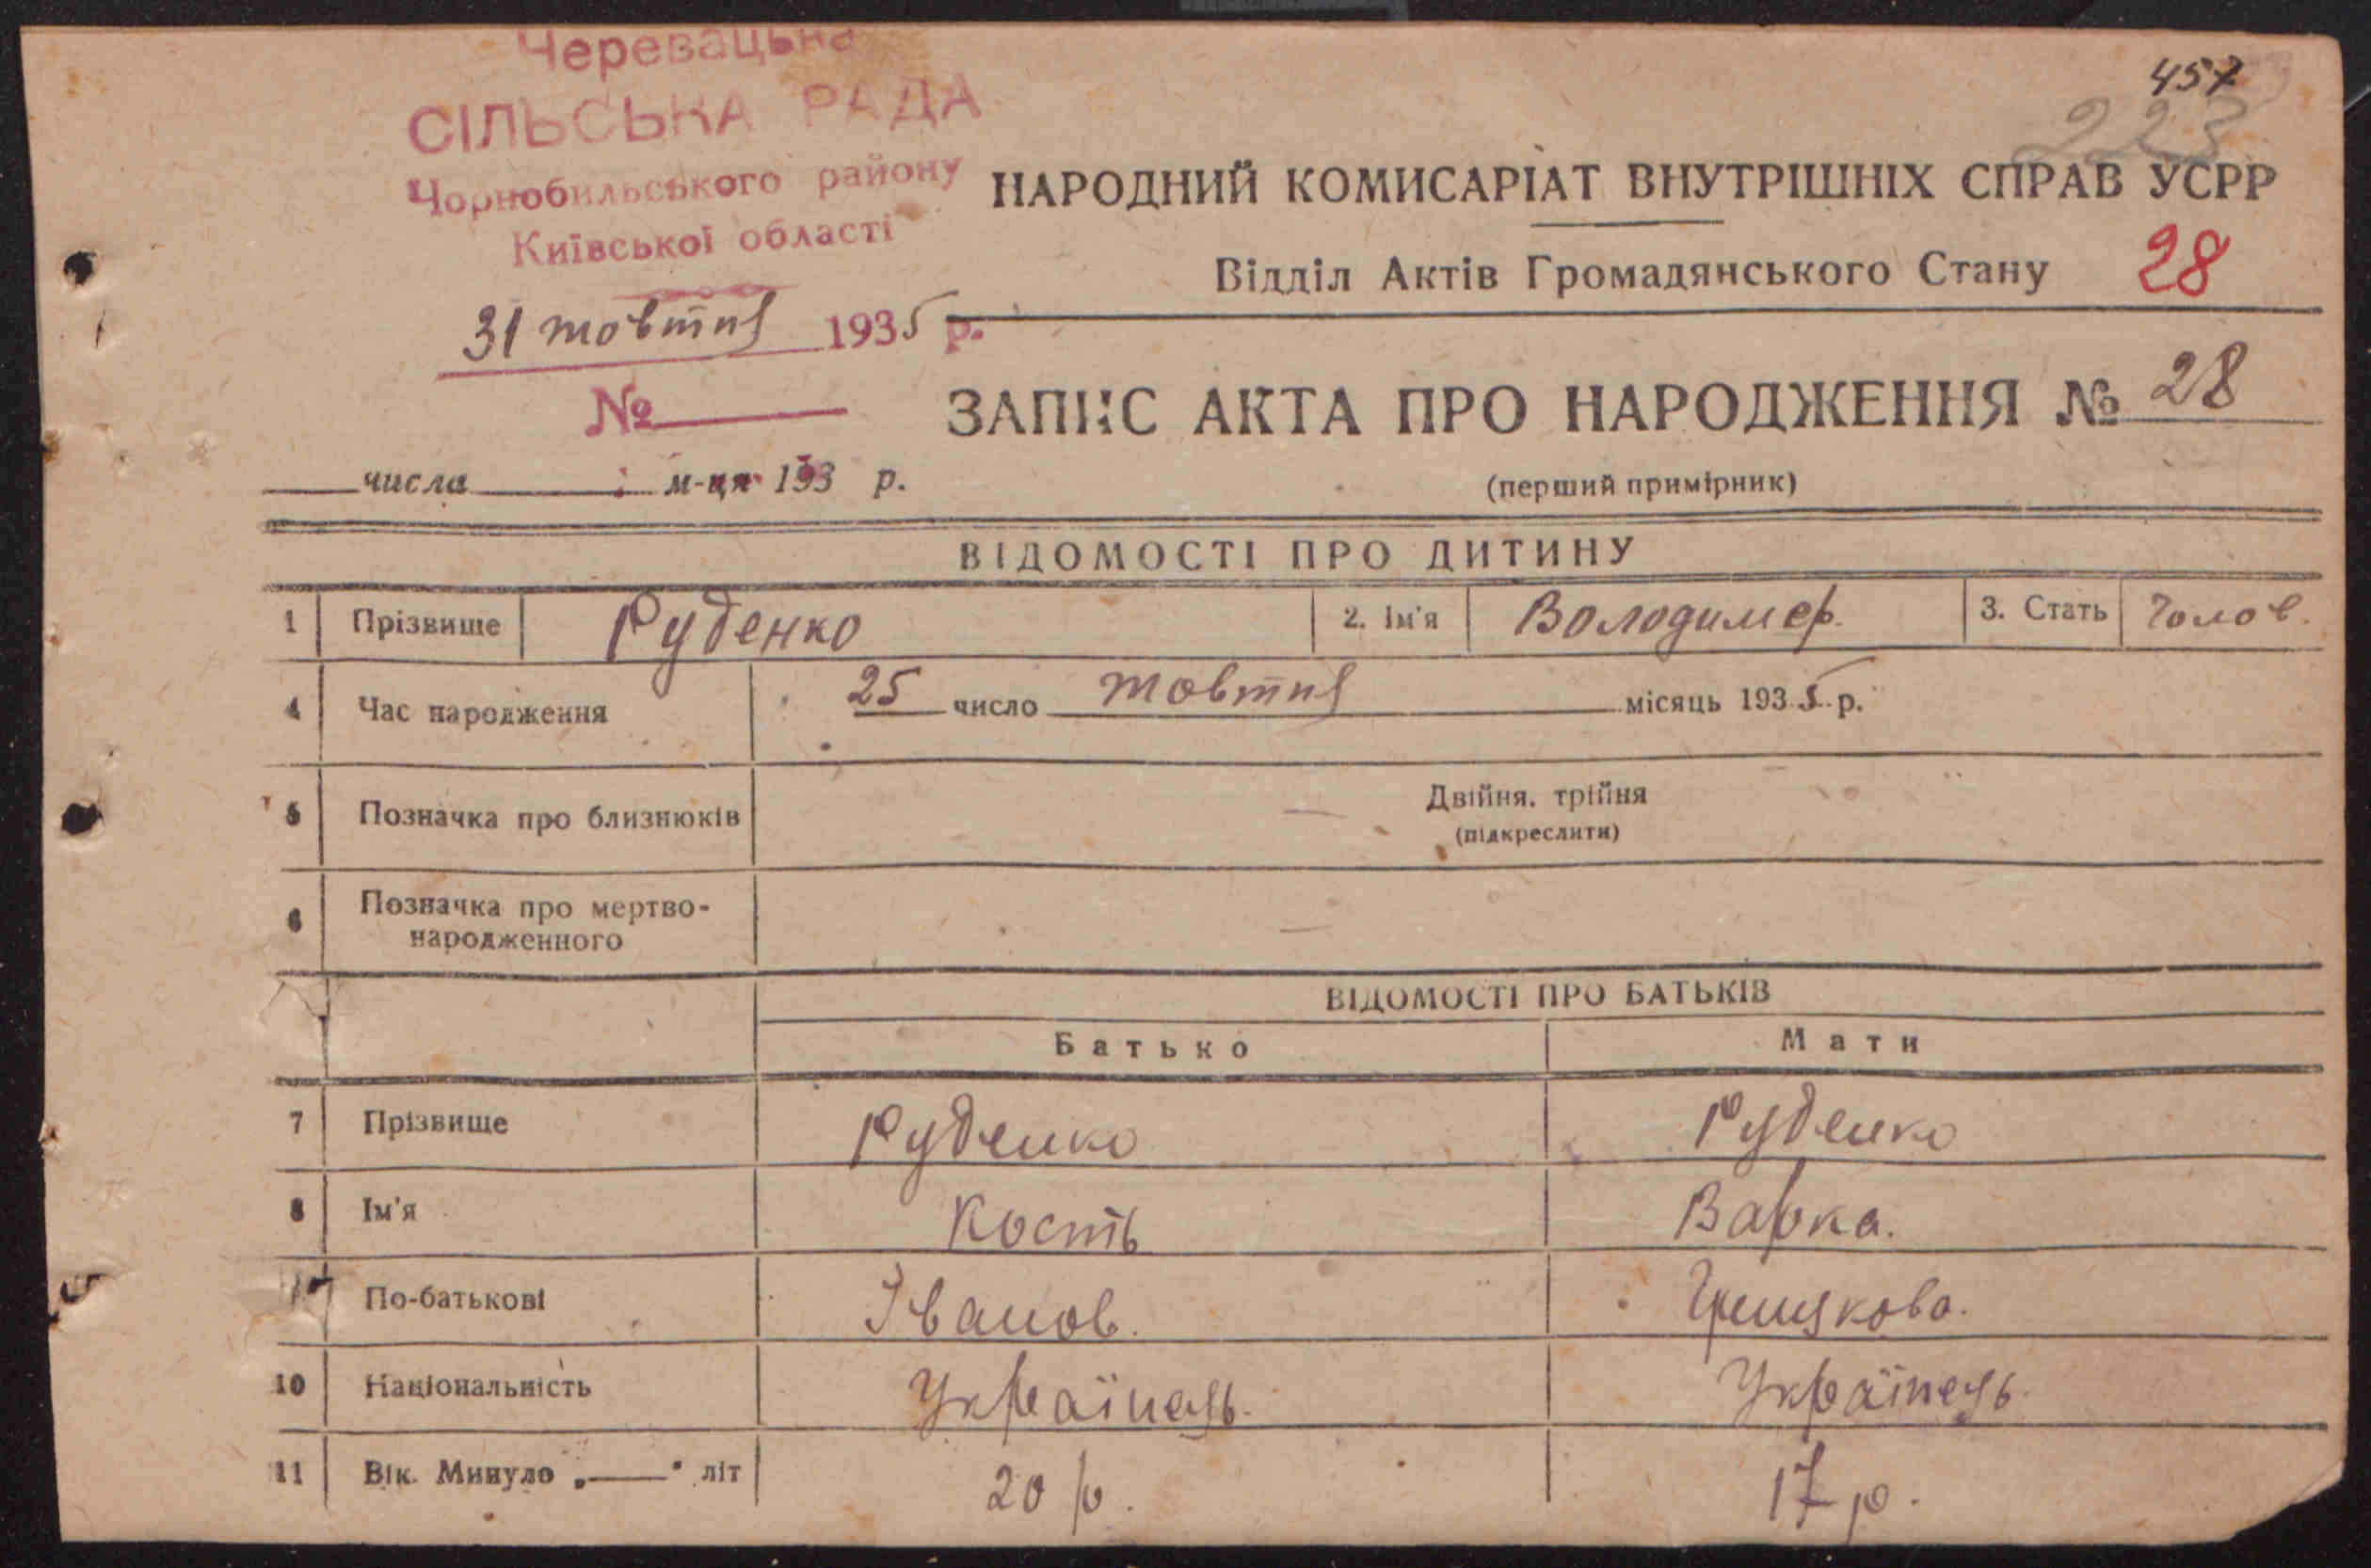 Черевацька
СІЛЬСЬКА РАДА
Чорнобильського району
Київської області
31 жовтня 1935 р.
№
457
223
НАРОДНИЙ КОМИСАРІАТ ВНУТРІШНІХ СПРАВ УСРР
Відділ Актів Громадянського Стану 28
ЗАПИС АКТА ПРО НАРОДЖЕННЯ № 28
(перший примірник)
числа м-ця 193 р.
ВІДОМОСТІ ПРО ДИТИНУ
1 Прізвище Руденко 2. Ім'я Володимер. 3. Стать Чолов.
4 Час народження 25 число жовтня місяць 1935 р.
5 Позначка про близнюків Двійня, трійня
(підкреслити)
6 Позначка про мертво-
народженного
ВІДОМОСТІ ПРО БАТЬКІВ
Батько Мати
7 Прізвище Руденко Руденко
8 Ім'я Кость Варка.
По-батькові Іванов.
10 Національність Українець. Українець.
11 Вік. Минуло „—" літ 20 р. 17 р.